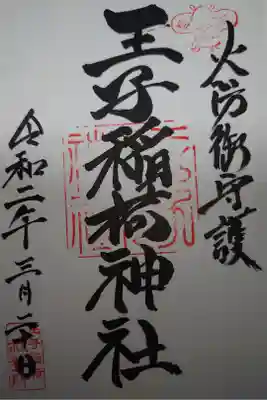 火防御守護
王子稲荷神社
令和二年三月二十日